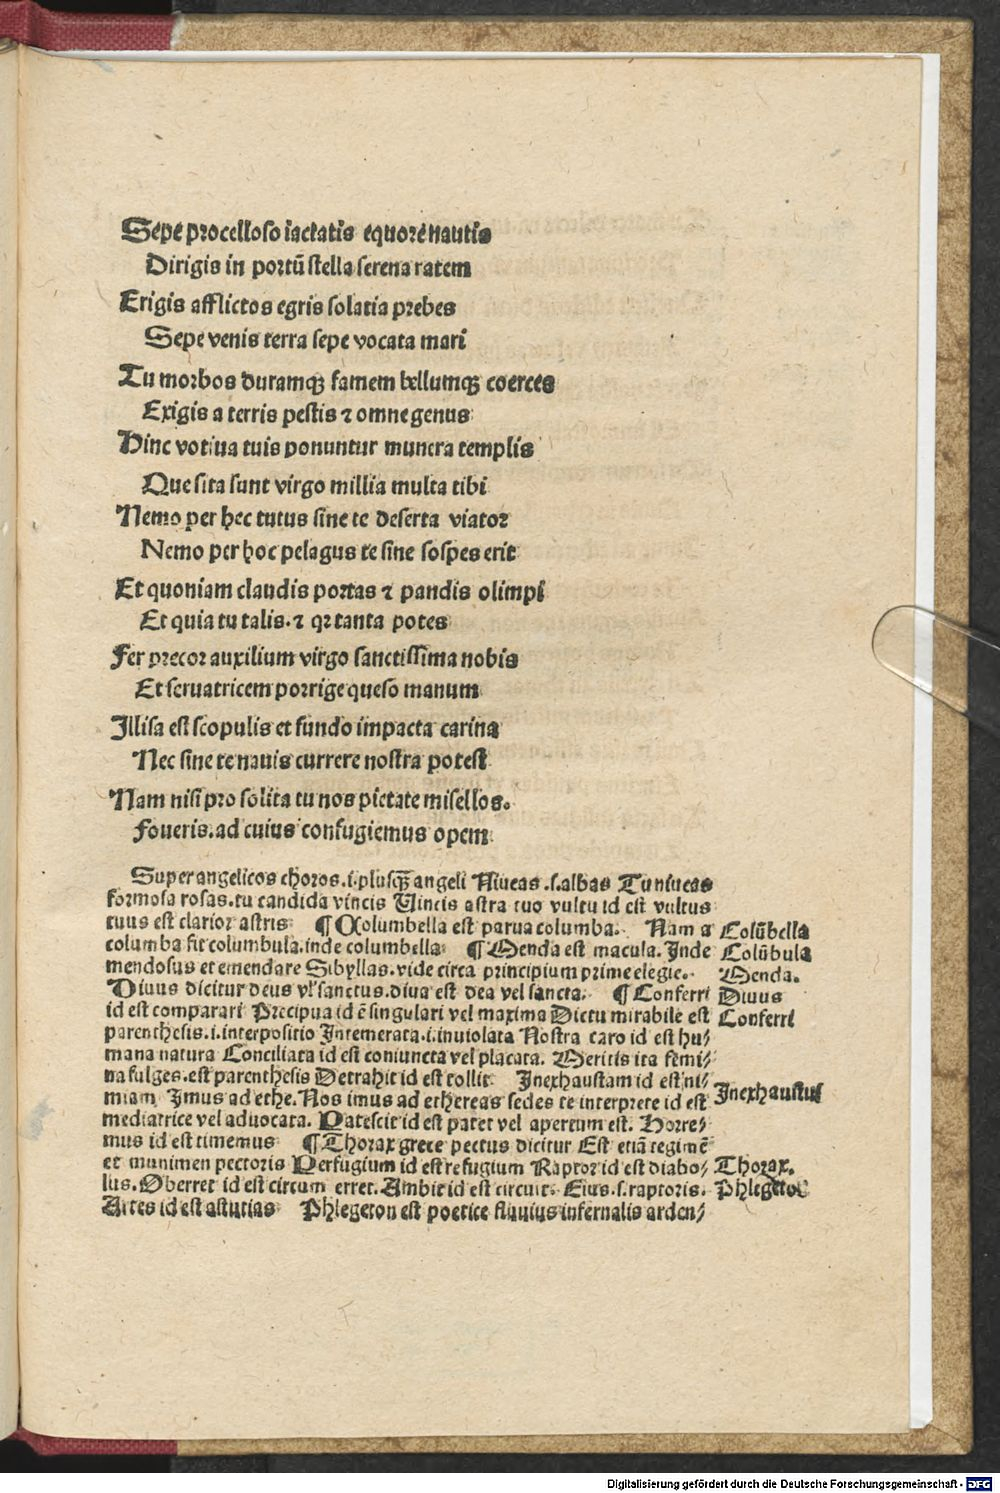 Sepe procelloso iactatis equore nautis
Dirigis in portū stella serena ratem
Erigis afflictos egris solatia prebes
Sepe venis terra sepe vocata mari
Tu morbos duramqꝫ famem bellumqꝫ coerces
Exigis a terris pestis ⁊ omne genus
Hinc votiua tuis ponuntur munera templis
Que sita sunt virgo millia multa tibi
Nemo per hec tutus sine te deserta viator
Nemo per hoc pelagus te sine sospes erit
Et quoniam claudis portas ⁊ pandis olimpi
Et quia tu talis. ⁊ qꝛ tanta potes
Fer precor auxilium virgo sanctissima nobis
Et seruatricem porrige queso manum
Illisa est scopulis et fundo impacta carina
Nec sine te nauis currere nostra potest
Nam nisi pro solita tu nos pietate misellos.
Foueris. ad cuius confugiemus opem
Super angelicos choros .i. plusqꝫ̄ angeli Niueas .s. albas Tu niueas
formosa rosas. tu candida vincis Uincis astra tuo vultu id est vultus
tuus est clarior astris ¶ Columbella est parua columba. Nam a
Colūbella
columba fit columbula. inde columbella ¶ Menda est macula. Inde
Colūbula
mendosus et emendare Sibyllas. vide circa principium prime elegie.
Menda.
Diuus dicitur deus vl' sanctus. diua est dea vel sancta. ¶ Conferri
Diuus
id est comparari Precipua id ē singulari vel maxima Dictu mirabile est
Conferri
parenthesis .i. interpositio Intemerata .i. inuiolata Nostra caro id est hu⸗
mana natura Conciliata id est coniuncta vel placata. Meritis ita femi⸗
na fulges. est parenthesis Detrahit id est tollit Inexhaustam id est ni⸗
miam Imus ad ethe. Nos imus ad ethereas sedes te interprete id est
Inexhaustus
mediatrice vel aduocata. Patescit id est patet vel apertum est. Horre⸗
mus id est timemus ¶ Thorax grece pectus dicitur Est etiā tegimē
et munimen pectoris Perfugium id est refugium Raptor id est diabo⸗
Thorax.
lus. Oberret id est circum erret. Ambit id est circuit. Eius .s. raptoris.
Phlegeton
Artes id est astutias Phlegeton est poetice fluuius infernalis arden⸗
Digitalisierung gefördert durch die Deutsche Forschungsgemeinschaft - DFG